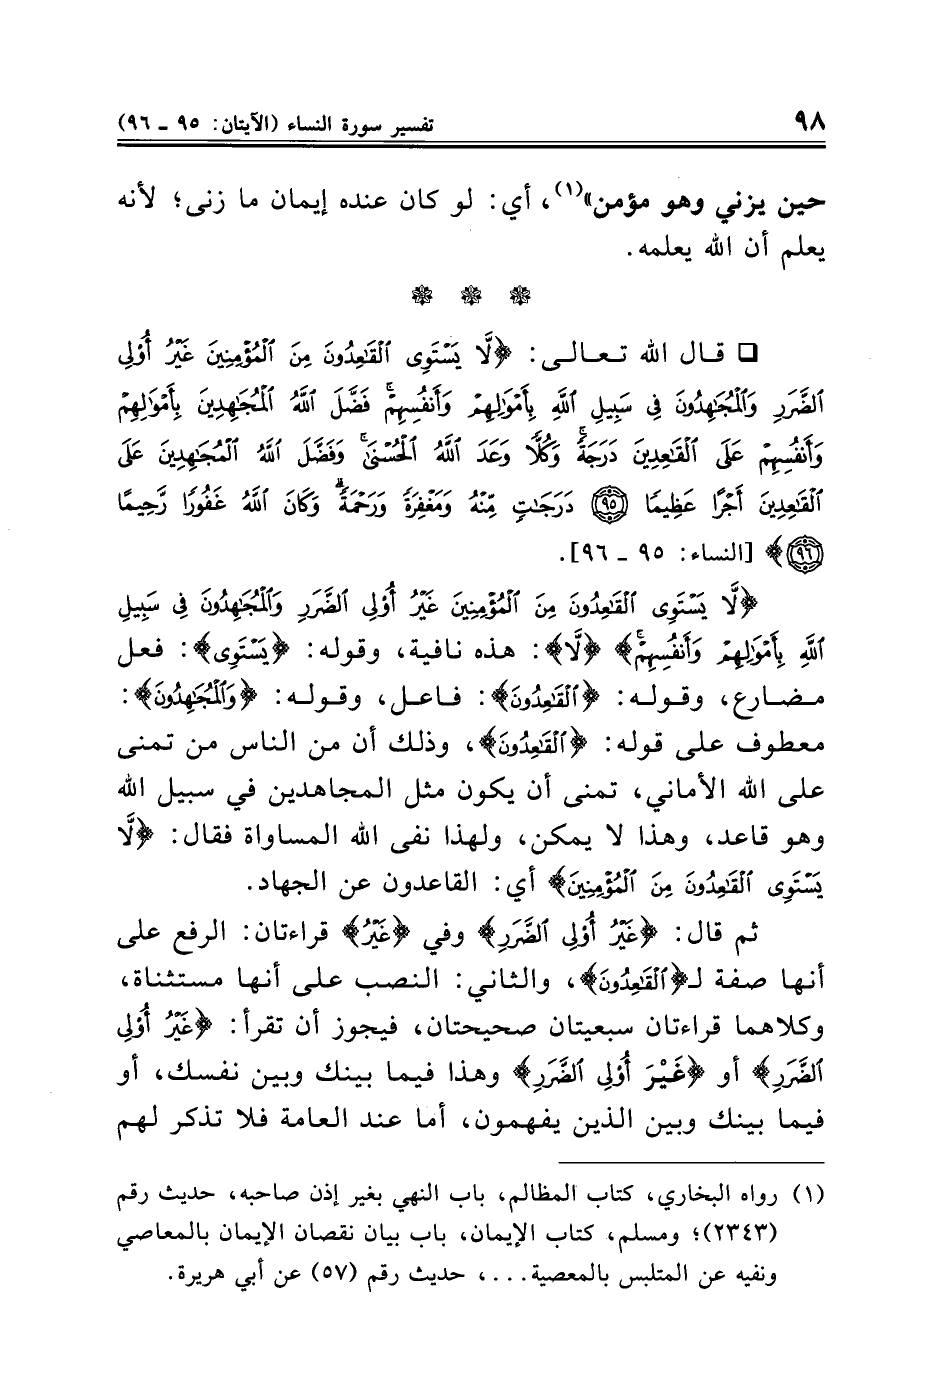 ٩٨ تفسير سورة النساء (الآيتان: ٩٥ ـ ٩٦)
حين يزني وهو مؤمن»(١)، أي: لو كان عنده إيمان ما زنى؛ لأنه
يعلم أن الله يعلمه.
❁ ❁ ❁
❑ قال الله تعالى: ﴿لَّا يَسْتَوِى ٱلْقَٰعِدُونَ مِنَ ٱلْمُؤْمِنِينَ غَيْرُ أُو۟لِى
ٱلضَّرَرِ وَٱلْمُجَٰهِدُونَ فِى سَبِيلِ ٱللَّهِ بِأَمْوَٰلِهِمْ وَأَنفُسِهِمْ ۚ فَضَّلَ ٱللَّهُ ٱلْمُجَٰهِدِينَ بِأَمْوَٰلِهِمْ
وَأَنفُسِهِمْ عَلَى ٱلْقَٰعِدِينَ دَرَجَةً ۚ وَكُلًّا وَعَدَ ٱللَّهُ ٱلْحُسْنَىٰ ۚ وَفَضَّلَ ٱللَّهُ ٱلْمُجَٰهِدِينَ عَلَى
ٱلْقَٰعِدِينَ أَجْرًا عَظِيمًا ۝٩٥ دَرَجَٰتٍ مِّنْهُ وَمَغْفِرَةً وَرَحْمَةً ۚ وَكَانَ ٱللَّهُ غَفُورًا رَّحِيمًا
۝٩٦﴾ [النساء: ٩٥ ـ ٩٦].
﴿لَّا يَسْتَوِى ٱلْقَٰعِدُونَ مِنَ ٱلْمُؤْمِنِينَ غَيْرُ أُو۟لِى ٱلضَّرَرِ وَٱلْمُجَٰهِدُونَ فِى سَبِيلِ
ٱللَّهِ بِأَمْوَٰلِهِمْ وَأَنفُسِهِمْ ۚ﴾ ﴿لَّا﴾: هذه نافية، وقوله: ﴿يَسْتَوِى﴾: فعل
مضارع، وقوله: ﴿ٱلْقَٰعِدُونَ﴾: فاعل، وقوله: ﴿وَٱلْمُجَٰهِدُونَ﴾:
معطوف على قوله: ﴿ٱلْقَٰعِدُونَ﴾، وذلك أن من الناس من تمنى
على الله الأماني، تمنى أن يكون مثل المجاهدين في سبيل الله
وهو قاعد، وهذا لا يمكن، ولهذا نفى الله المساواة فقال: ﴿لَّا
يَسْتَوِى ٱلْقَٰعِدُونَ مِنَ ٱلْمُؤْمِنِينَ﴾ أي: القاعدون عن الجهاد.
ثم قال: ﴿غَيْرُ أُو۟لِى ٱلضَّرَرِ﴾ وفي ﴿غَيْرُ﴾ قراءتان: الرفع على
أنها صفة لـ﴿ٱلْقَٰعِدُونَ﴾، والثاني: النصب على أنها مستثناة،
وكلاهما قراءتان سبعيتان صحيحتان، فيجوز أن تقرأ: ﴿غَيْرُ أُو۟لِى
ٱلضَّرَرِ﴾ أو ﴿غَيْرَ أُو۟لِى ٱلضَّرَرِ﴾ وهذا فيما بينك وبين نفسك، أو
فيما بينك وبين الذين يفهمون، أما عند العامة فلا تذكر لهم
(١) رواه البخاري، كتاب المظالم، باب النهي بغير إذن صاحبه، حديث رقم
(٢٣٤٣)؛ ومسلم، كتاب الإيمان، باب بيان نقصان الإيمان بالمعاصي
ونفيه عن المتلبس بالمعصية...، حديث رقم (٥٧) عن أبي هريرة.